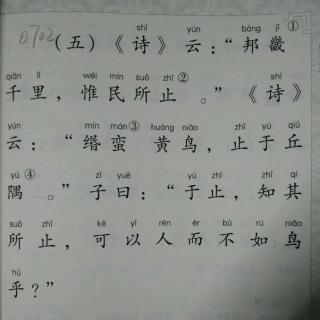 0702
shī yún bāng jī
(五)《诗》云：“邦畿①
qiān lǐ wéi mín suǒ zhǐ shī
千里，惟民所止②。”《诗》
yún mín mán huáng niǎo zhǐ yú qiū
云：“缗蛮③黄鸟，止于丘
yú zǐ yuē yú zhǐ zhī qí
隅④。”子曰：“于止，知其
suǒ zhǐ kě yǐ rén ér bù rú niǎo
所止，可以人而不如鸟
hū
乎？”